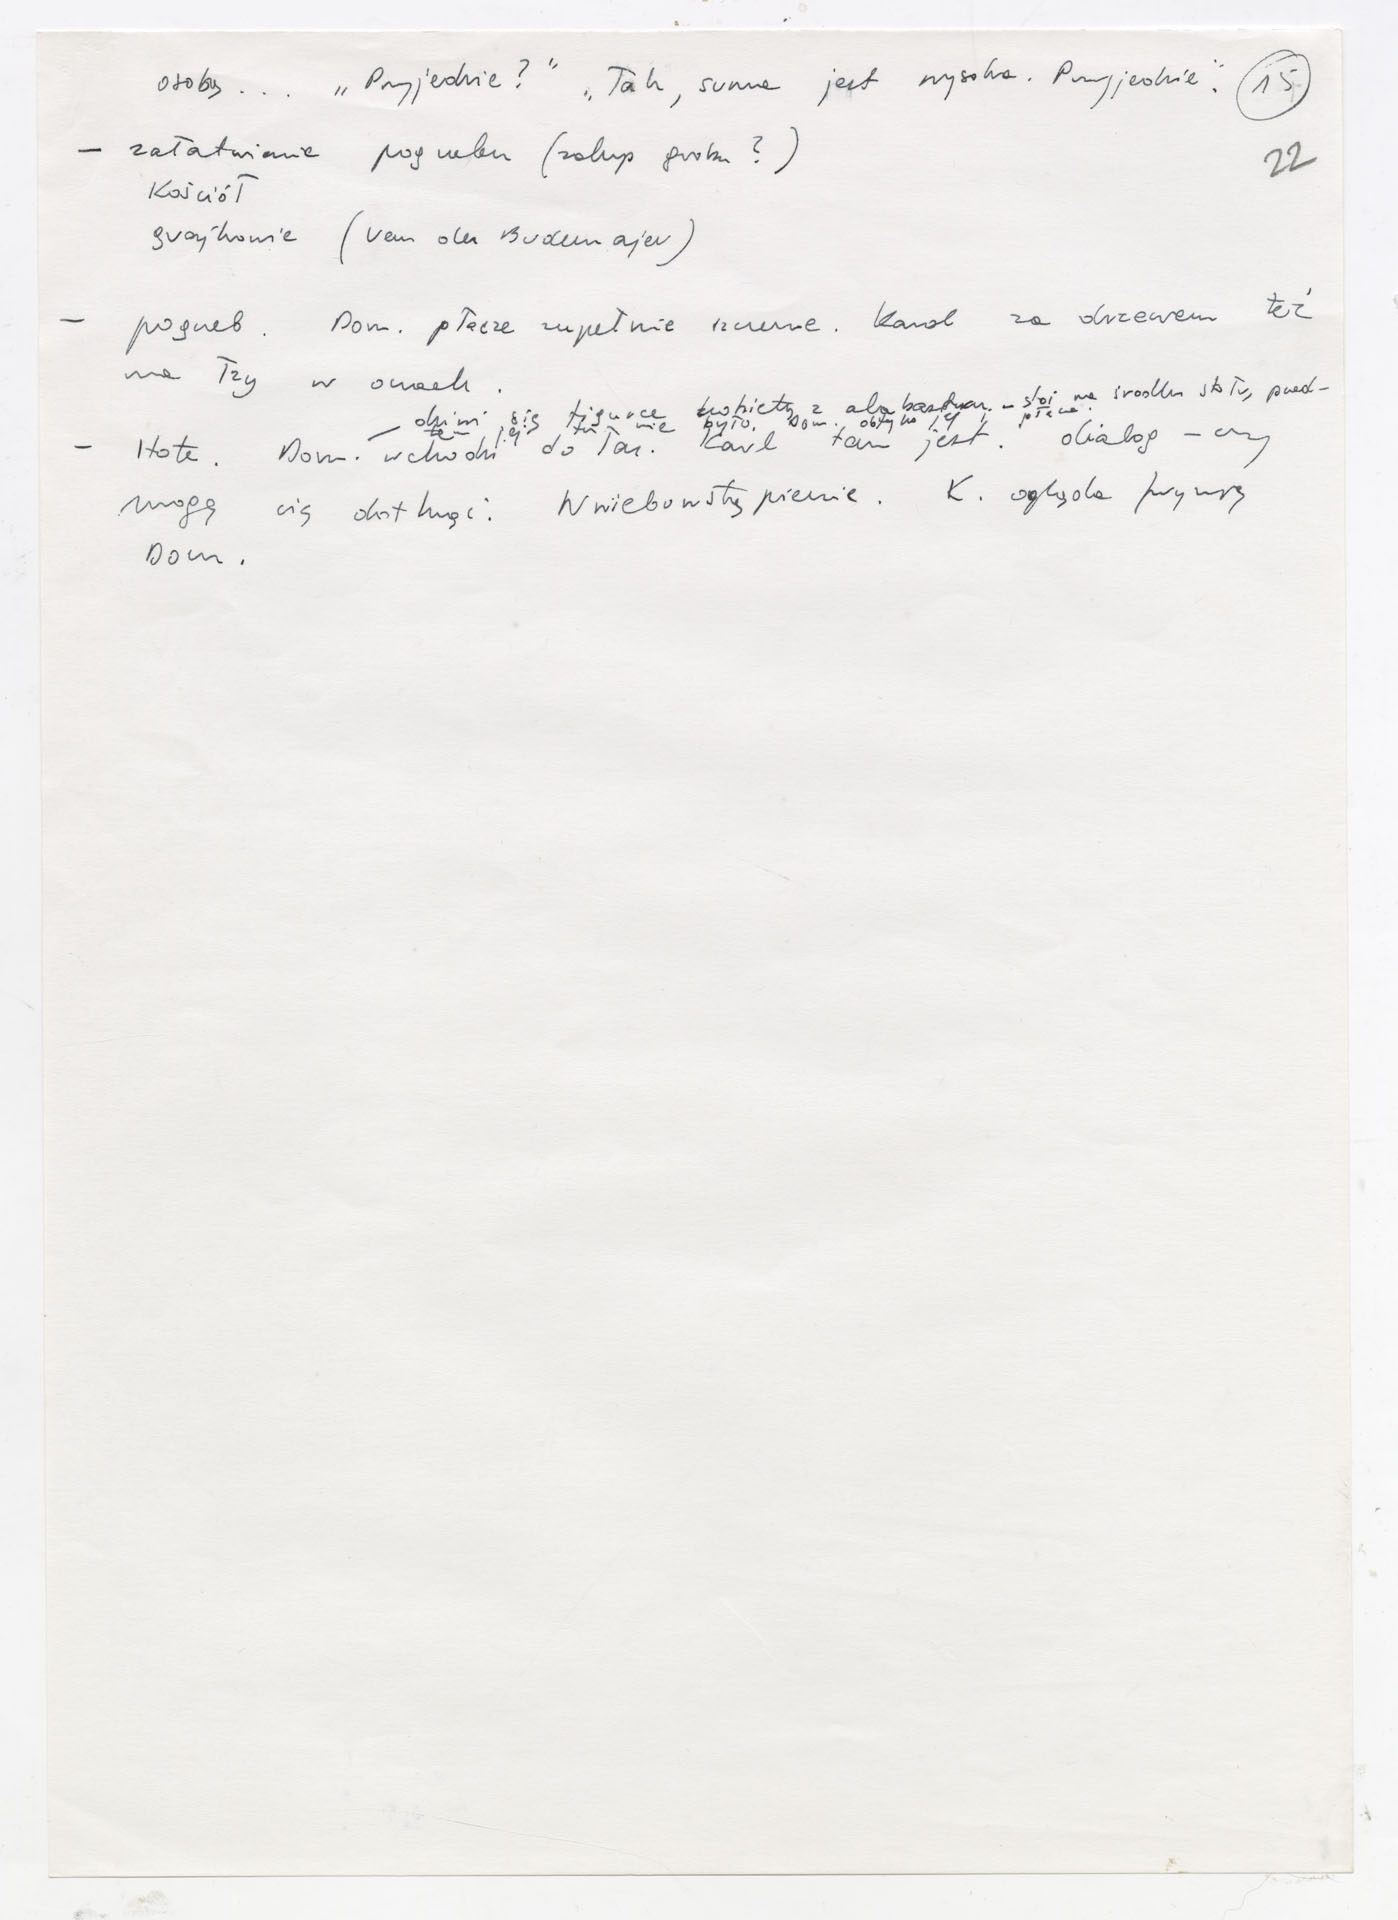 osoby... „Przyjedzie?” „Tak, suma jest wysoka. Przyjedzie”. 15
22
– załatwianie pogrzebu (zakup grobu?)
Kościół
grajkowie (Van der Budenmajer)
– pogrzeb. Dom. płacze zupełnie szczerze. Karol za drzewem też
ma łzy w oczach.
– dziwi się figurce kobiety z alabastru – stoi na środku stołu, przed-
tem jej tu nie było. Dom. obtyka jej płacze.
– Hote. Dom. wchodzi do łaz. Karol tam jest. dialog – czy
mogę cię dotknąć. Wniebowstąpienie. K. ogląda fryzurę
Dom.